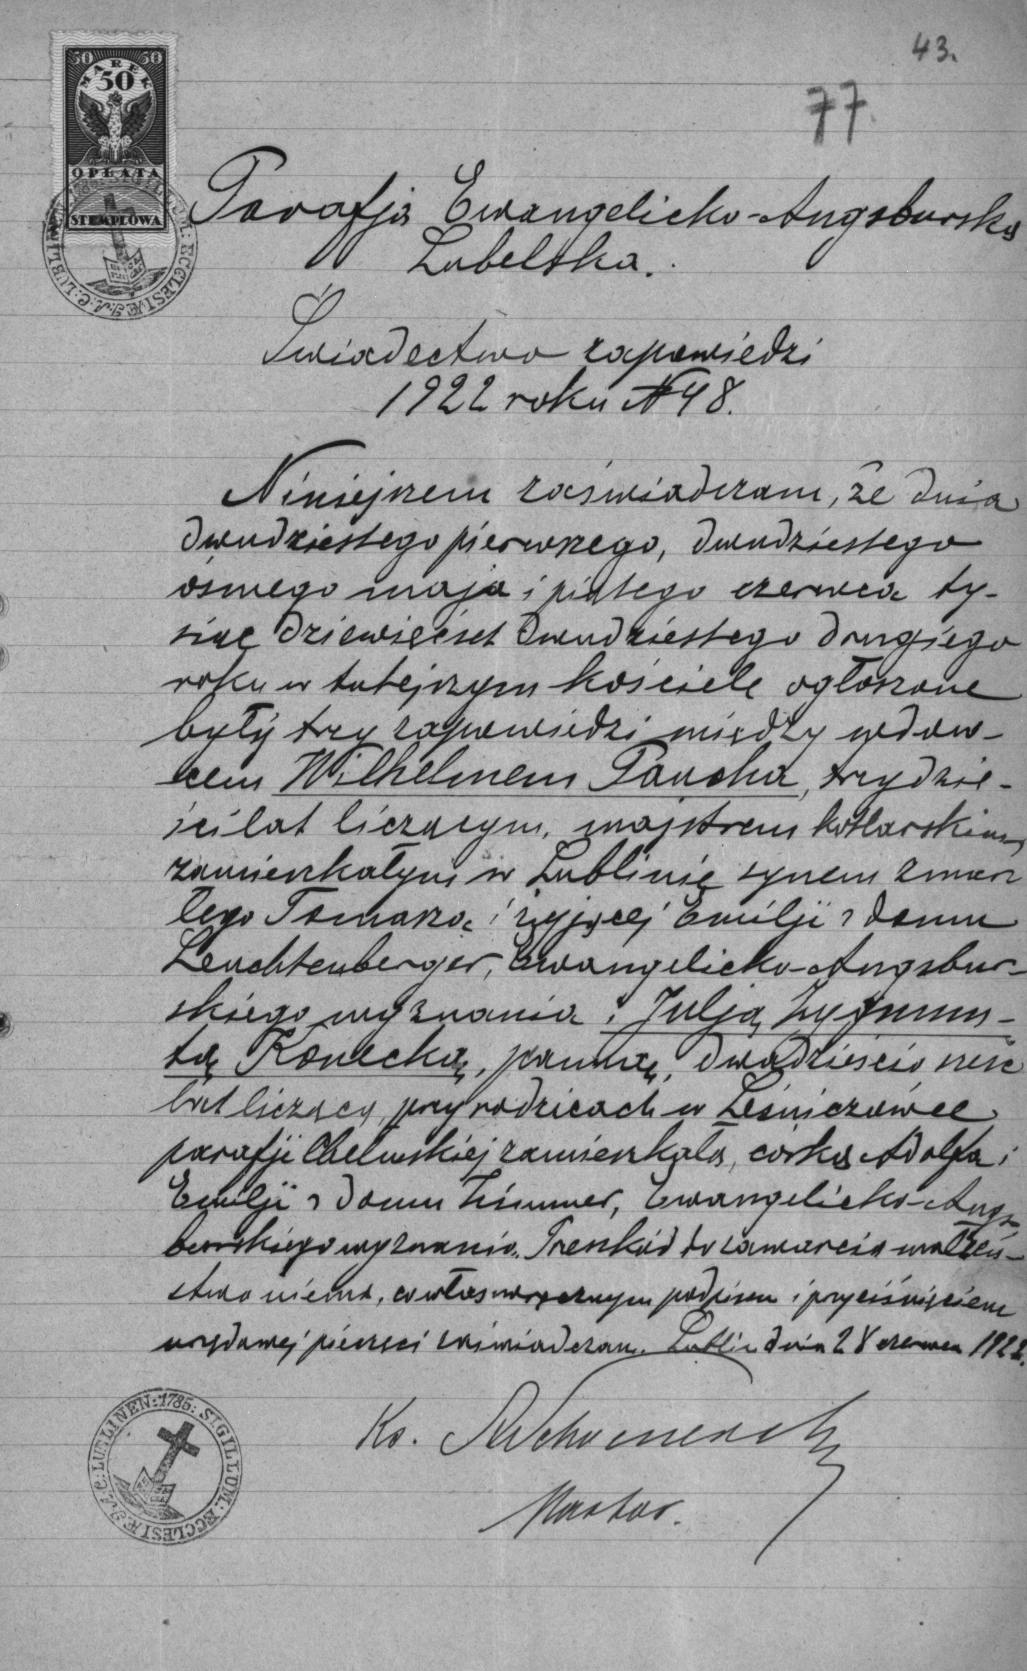 43.
77.
50 50
MAREK
50
OPŁATA
STEMPLOWA
Parafja Ewangelicko-Augsburska
Lubelska.
Świadectwo zapowiedzi
1922 roku № 48.
Niniejszem zaświadczam, że dnia
dwudziestego pierwszego, dwudziestego
ósmego maja i piątego czerwca ty-
siąc dziewięćset dwudziestego drugiego
roku w tutejszym kościele ogłoszone
były trzy zapowiedzi między wdow-
cem Wilhelmem Paucha, trzydzie-
ści lat liczącym, majstrem kotlarskim
zamieszkałym w Lublinie synem zmar
łego Tomasza i żyjącej Emilji z domu
Leuchtenberger, Ewangelicko-Augsbur-
skiego wyznania i Julją Zygmun-
tą Konecką, panną, dwadzieścia sześć
lat liczącą, przy rodzicach w Leśniczówce
parafji Chełmskiej zamieszkałą, córką Adolfa i
Emilji z domu Zimmer, Ewangelicko-Augs-
burskiego wyznania. Przeszkód do zawarcia małżeń-
stwa niema, co własnoręcznym podpisem i przyciśnięciem
urzędowej pieczęci zaświadczam. Lublin dnia 28 czerwca 1922.
Ks.
Pastor.
SIGILLUM: ECCLESIÆ A. C. LUBLINEN: 1785: